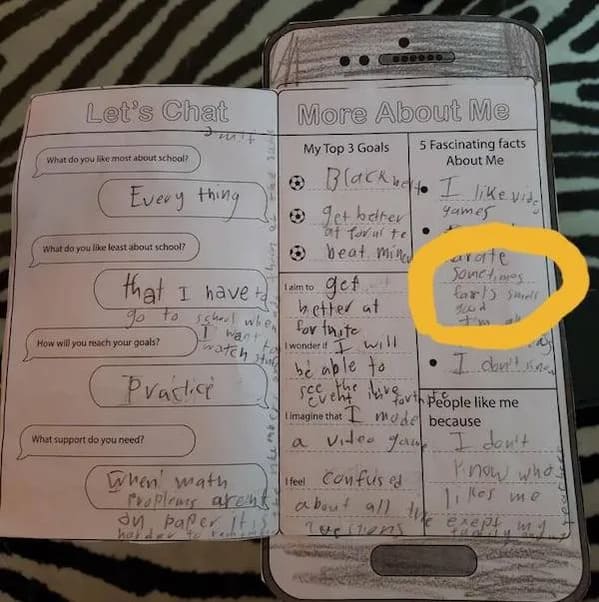 Let's Chat
What do you like most about school?
Every thing
What do you like least about school?
that I have to
go to school when
I want to
watch stuff
How will you reach your goals?
Practice
What support do you need?
When math
problems arent
on paper It is
harder to
More About Me
My Top 3 Goals
Black belt
get better
at
beat
I aim to get
better at
fortnite
I wonder if I will
be able to
see the live
event
I imagine that I made
a video game
I feel confused
about all the
questions
5 Fascinating facts
About Me
I like vide
games
sometimes
farts smell
good
I don't know
People like me
because
I don't
know who
likes me
exept my
family and